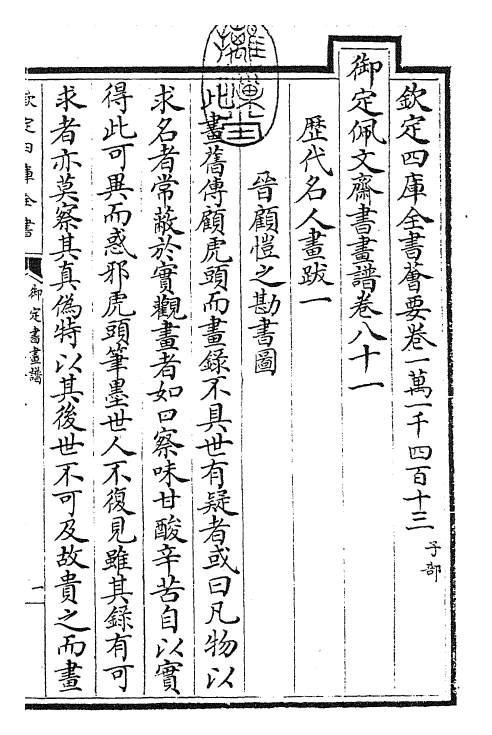 欽定四庫全書薈要卷一萬一千四百十三 子部
御定佩文齋書畫譜卷八十一
歷代名人畫跋一
晉顧愷之勘書圖
此畫舊傳顧虎頭而畫錄不具世有疑者或曰凡物以
求名者常蔽於實觀畫者如口察味甘酸辛苦自以實
得此可異而惑邪虎頭筆墨世人不復見雖其錄有可
求者亦莫察其真偽特以其後世不可及故貴之而畫
欽定四庫全書
御定書畫譜
一